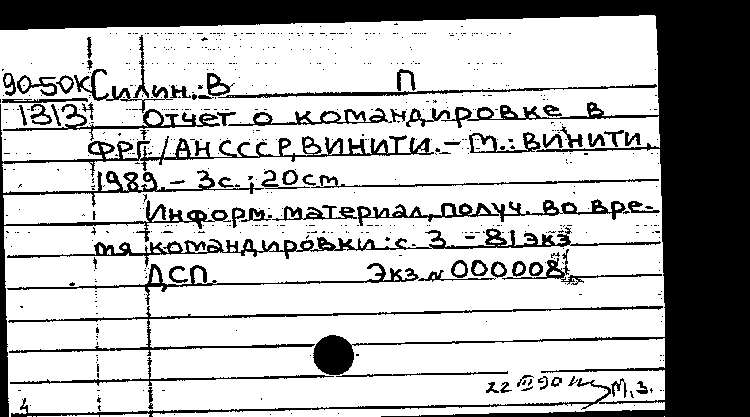 90-50К Силин.:В П
1313 Отчет о командировке в
ФРГ./АН СССР, ВИНИТИ. – М.: ВИНИТИ,
1989. – 3с.; 20ст.
Информ. материал, получ. во вре-
мя командировки: с. 3. – 81экз
ДСП. Экз. № 000008
22 III 90 М.З.
4